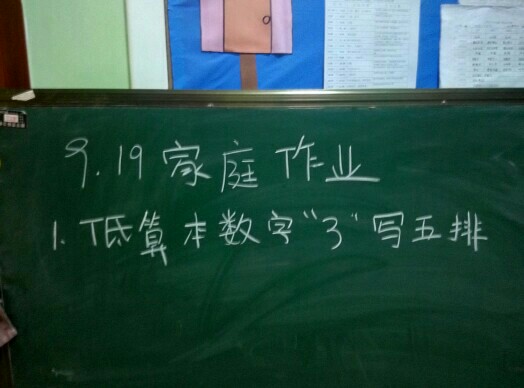 9.19家庭作业
1.低算本数字"3"写五排